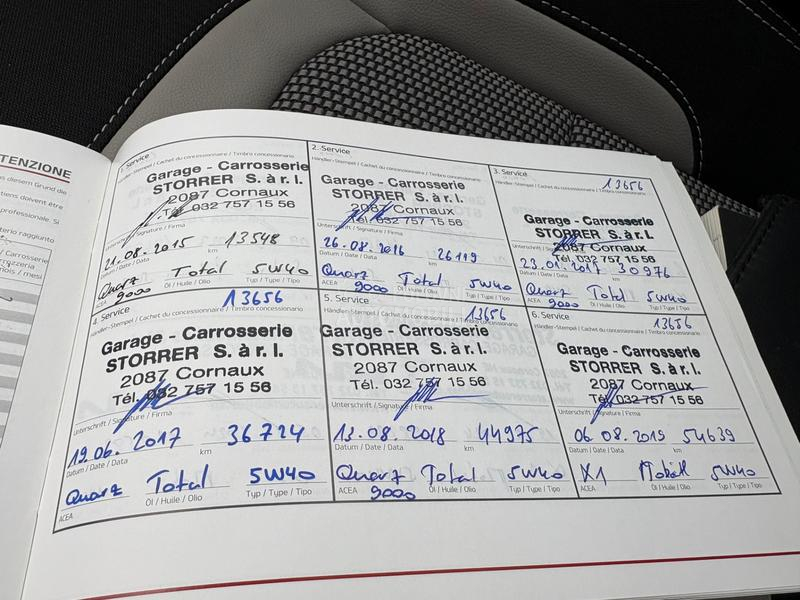 TENZIONE
1. Service
Händler-Stempel / Cachet du concessionnaire / Timbro concessionario
Garage - Carrosserie
STORRER S. à r. l.
2087 Cornaux
Tél. 032 757 15 56
21.08.2015 13548
km
Quarz 9000 Total 5W40
Öl / Huile / Olio Typ / Type / Tipo
2. Service
Händler-Stempel / Cachet du concessionnaire / Timbro concessionario
Garage - Carrosserie
STORRER S. à r. l.
2087 Cornaux
Tél. 032 757 15 56
Unterschrift / Signature / Firma
26.08.2016 26119
Datum / Date / Data km
Quarz 9000 Total 5W40
ACEA Öl / Huile / Olio Typ / Type / Tipo
3. Service
13656
Händler-Stempel / Cachet du concessionnaire / Timbro concessionario
Garage - Carrosserie
STORRER S. à r. l.
2087 Cornaux
Tél. 032 757 15 56
Unterschrift / Signature / Firma
30976
Datum / Date / Data km
Quarz 9000 Total 5W40
ACEA Öl / Huile / Olio Typ / Type / Tipo
4. Service
13656
Händler-Stempel / Cachet du concessionnaire / Timbro concessionario
Garage - Carrosserie
STORRER S. à r. l.
2087 Cornaux
Tél. 032 757 15 56
Unterschrift / Signature / Firma
19.06.2017 36724
Datum / Date / Data km
Quarz Total 5W40
ACEA Öl / Huile / Olio Typ / Type / Tipo
5. Service
13656
Händler-Stempel / Cachet du concessionnaire / Timbro concessionario
Garage - Carrosserie
STORRER S. à r. l.
2087 Cornaux
Tél. 032 757 15 56
Unterschrift / Signature / Firma
13.08.2018 44975
Datum / Date / Data km
Quarz 9000 Total 5W40
ACEA Öl / Huile / Olio Typ / Type / Tipo
6. Service
13656
Händler-Stempel / Cachet du concessionnaire / Timbro concessionario
Garage - Carrosserie
STORRER S. à r. l.
2087 Cornaux
Tél. 032 757 15 56
Unterschrift / Signature / Firma
06.08.2019 54639
Datum / Date / Data km
X1 Mobil 5W40
ACEA Öl / Huile / Olio Typ / Type / Tipo